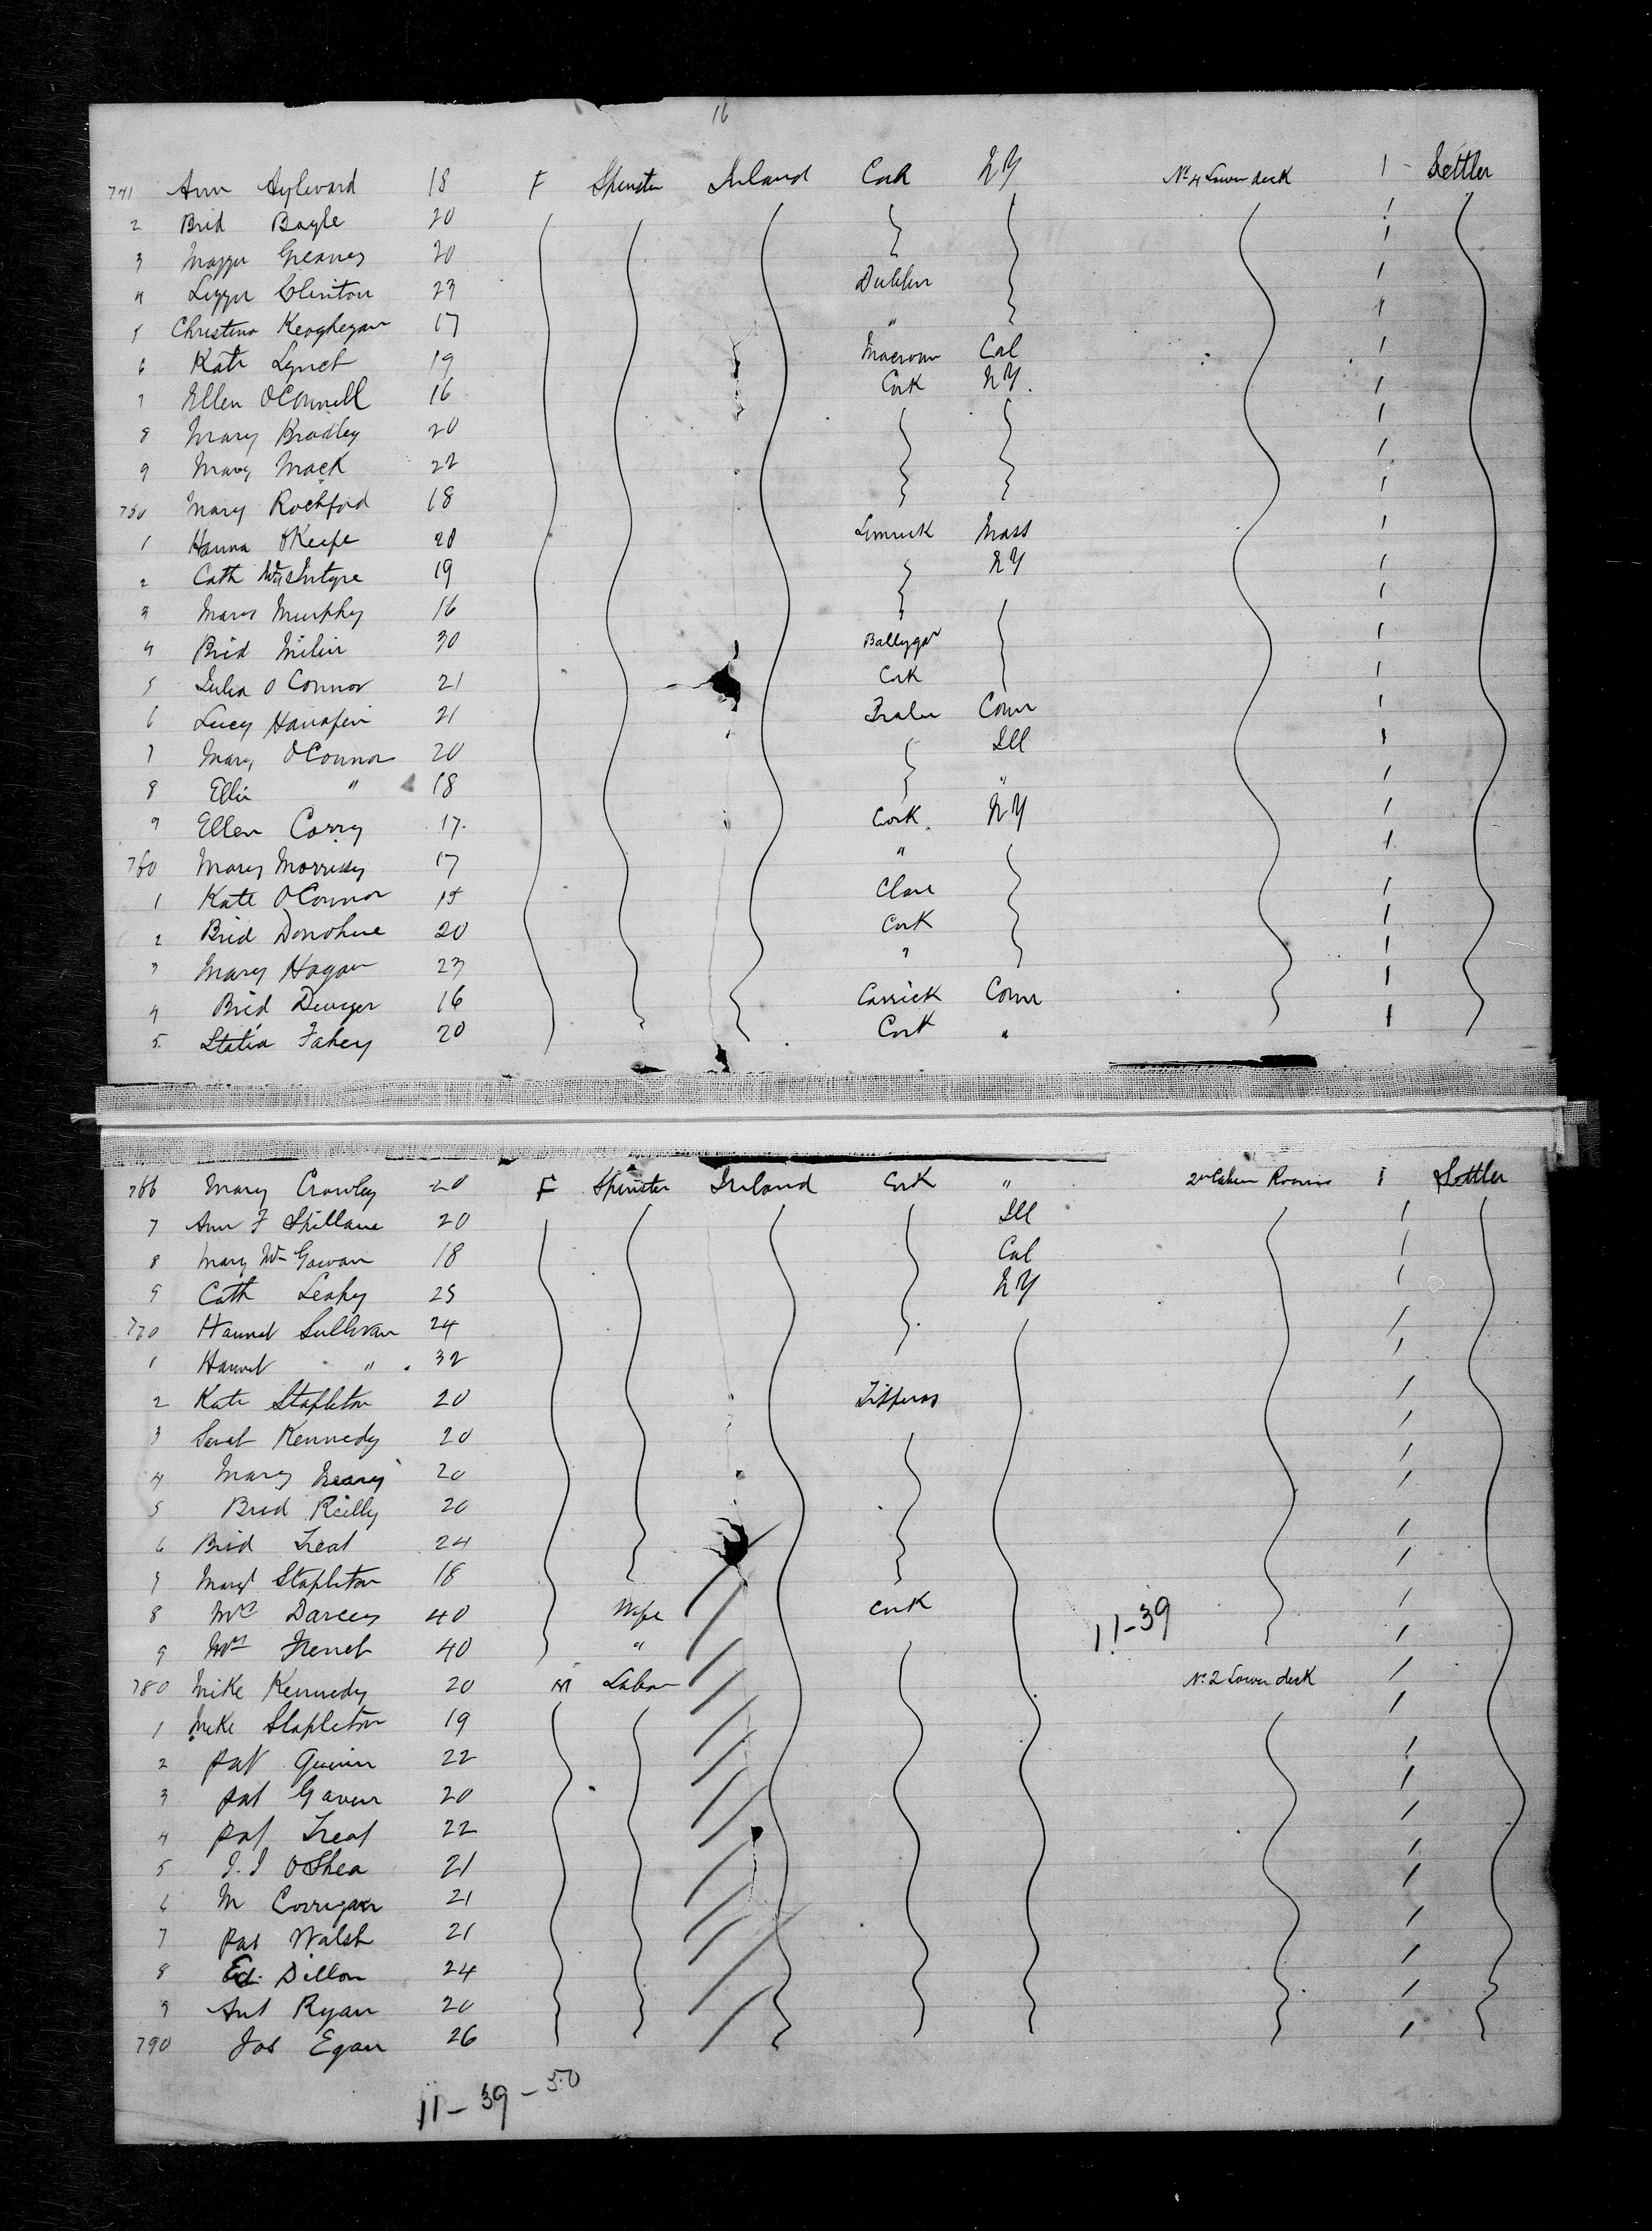 16
741 Ann Aylward 18 F Spinster Ireland Cork NY No 4 Lower deck 1 Settler
2 Brid Boyle 20
3 Maggie Greaney 20
4 Lizzie Clinton 23 Dublin
5 Christina Keoghegan 17 "
6 Kate Lynch 19 Macroom Cal
7 Ellen OConnell 16 Cork NY.
8 Mary Bradley 20
9 Mary Mack 22
750 Mary Rochford 18
1 Hanna OKeefe 20 Limrick Mass
2 Cath McIntyre 19 NY
3 Mary Murphy 16
4 Brid 30 Ballygar
5 Julia O Connor 21 Cork
6 Lucy Hanafin 21 Tralee Conn
7 Mary OConnor 20 Ill
8 Ellie " 18 "
9 Ellen Corry 17. Cork NY
760 Mary Morrissy 17 "
1 Kate OConnor 15 Clare
2 Brid Donohue 20 Cork
3 Mary Hogan 23 "
4 Brid Dwyer 16 Carrick Conn
5. Statia Fahey 20 Cork "
766 Mary Crowley 20 F Spinster Ireland Cork " 2nd Cabin Rooms 1 Settler
7 Ann F Spillane 20 Ill
8 Mary Mc Gowan 18 Cal
9 Cath Leahy 25 NY
770 Hannah Sullivan 24
1 Hannah " 32
2 Kate Stapleton 20 Tipperary
3 Sarah Kennedy 20
4 Mary Neary 20
5 Brid Reilly 20
6 Brid Treat 24
7 Mary Stapleton 18
8 Mrs Darcey 40 Wife Cork
9 Mrs French 40 "
11-39
780 Mike Kennedy 20 M Labor No 2 Lower deck
1 Mike Stapleton 19
2 Pat Quinn 22
3 Pat Gaven 20
4 Pat Treat 22
5 J. J OShea 21
6 M Corrigan 21
7 Pat Walsh 21
8 Ed. Dillon 24
9 Ant Ryan 20
790 Jos Egan 26
11-39-50